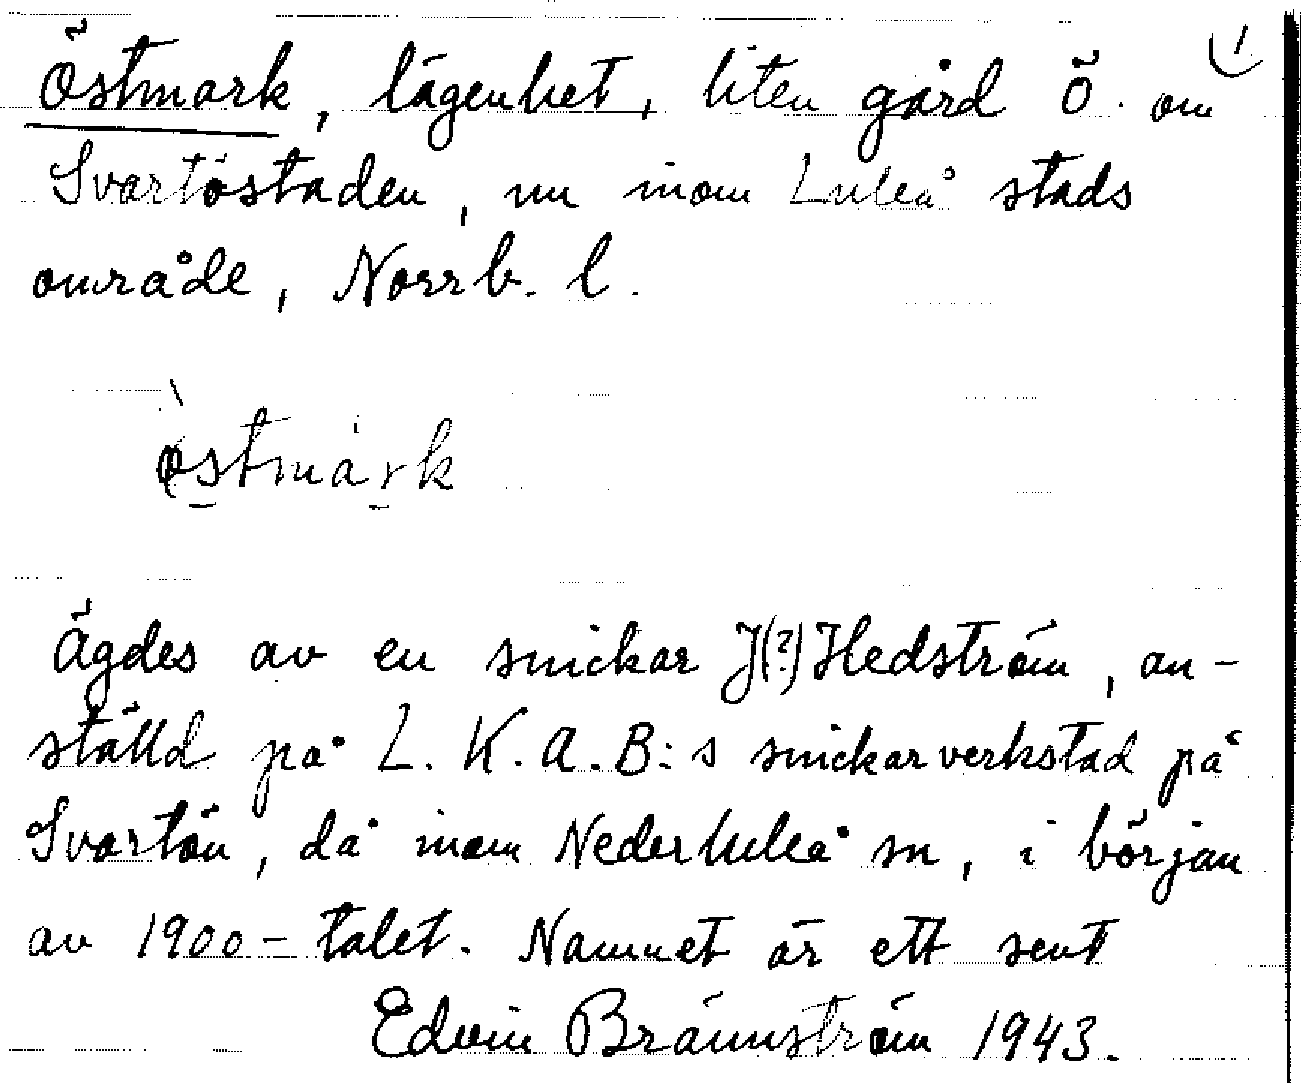 Östmark, lägenhet, liten gård Ö. om 1
Svartöstaden, nu inom Luleå stads
område, Norrb. l.
östmark
Ägdes av en snickar J(?) Hedström, an-
ställd på L.K.A.B:s snickarverkstad på
Svartön, då inom Nederluleå sn, i början
av 1900-talet. Namnet är ett sent
Edvin Brännström 1943.